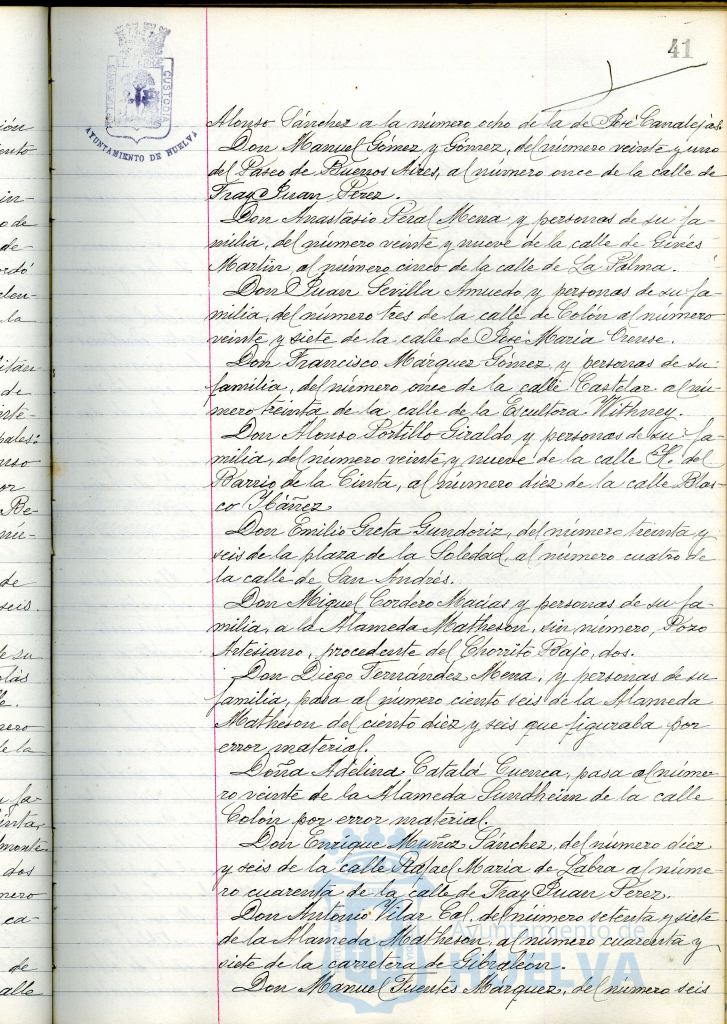 41
CUSTODIA
AYUNTAMIENTO DE HUELVA
Alonso Sánchez a la número ocho de la de José Canalejas
Don Manuel Gómez y Gómez, del número veinte y uno
del Paseo de Buenos Aires, al número once de la calle de
Fray Juan Pérez.
Don Anastasio Peral Mena y personas de su fa-
milia, del número veinte y nueve de la calle de Ginés
Martin, al número cinco de la calle de La Palma.
Don Juan Sevilla Amuedo y personas de su fa-
milia, del número tres de la calle de Colón al número
veinte y siete de la calle de José María Orense.
Don Francisco Márquez Gómez, y personas de su
familia, del número once de la calle Castelar al nú-
mero treinta de la calle de la Escultora Withney.
Don Alonso Portillo Giraldo y personas de su fa-
milia, del número veinte y nueve de la calle H. del
Barrio de la Cinta, al número diez de la calle Blas-
co Ibáñez
Don Emilio Greta Gundoriz, del número treinta y
seis de la plaza de la Soledad, al número cuatro de
la calle de San Andrés.
Don Miguel Cordero Macías y personas de su fa-
milia, a la Alameda Matheson, sin número, Pozo
Artesiano, procedente del Chorrito Bajo, dos.
Don Diego Fernández Mena, y personas de su
familia, pasa al número ciento seis de la Alameda
Matheson del ciento diez y seis que figuraba por
error material.
Doña Adelina Catalá Cuenca, pasa al núme-
ro veinte de la Alameda Sundheim de la calle
Colón por error material.
Don Enrique Muñoz Sánchez, del número diez
y seis de la calle Rafael María de Labra al núme-
ro cuarenta de la calle de Fray Juan Pérez.
Don Antonio Vilar Cal, del número setenta y siete
de la Alameda Matheson, al número cuarenta y
siete de la carretera de Gibraleón.
Don Manuel Fuentes Márquez, del número seis
Ayuntamiento de
HUELVA